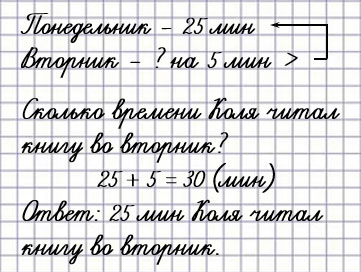 Понедельник – 25 мин
Вторник – ? на 5 мин >
Сколько времени Коля читал
книгу во вторник?
25 + 5 = 30 (мин)
Ответ: 25 мин Коля читал
книгу во вторник.